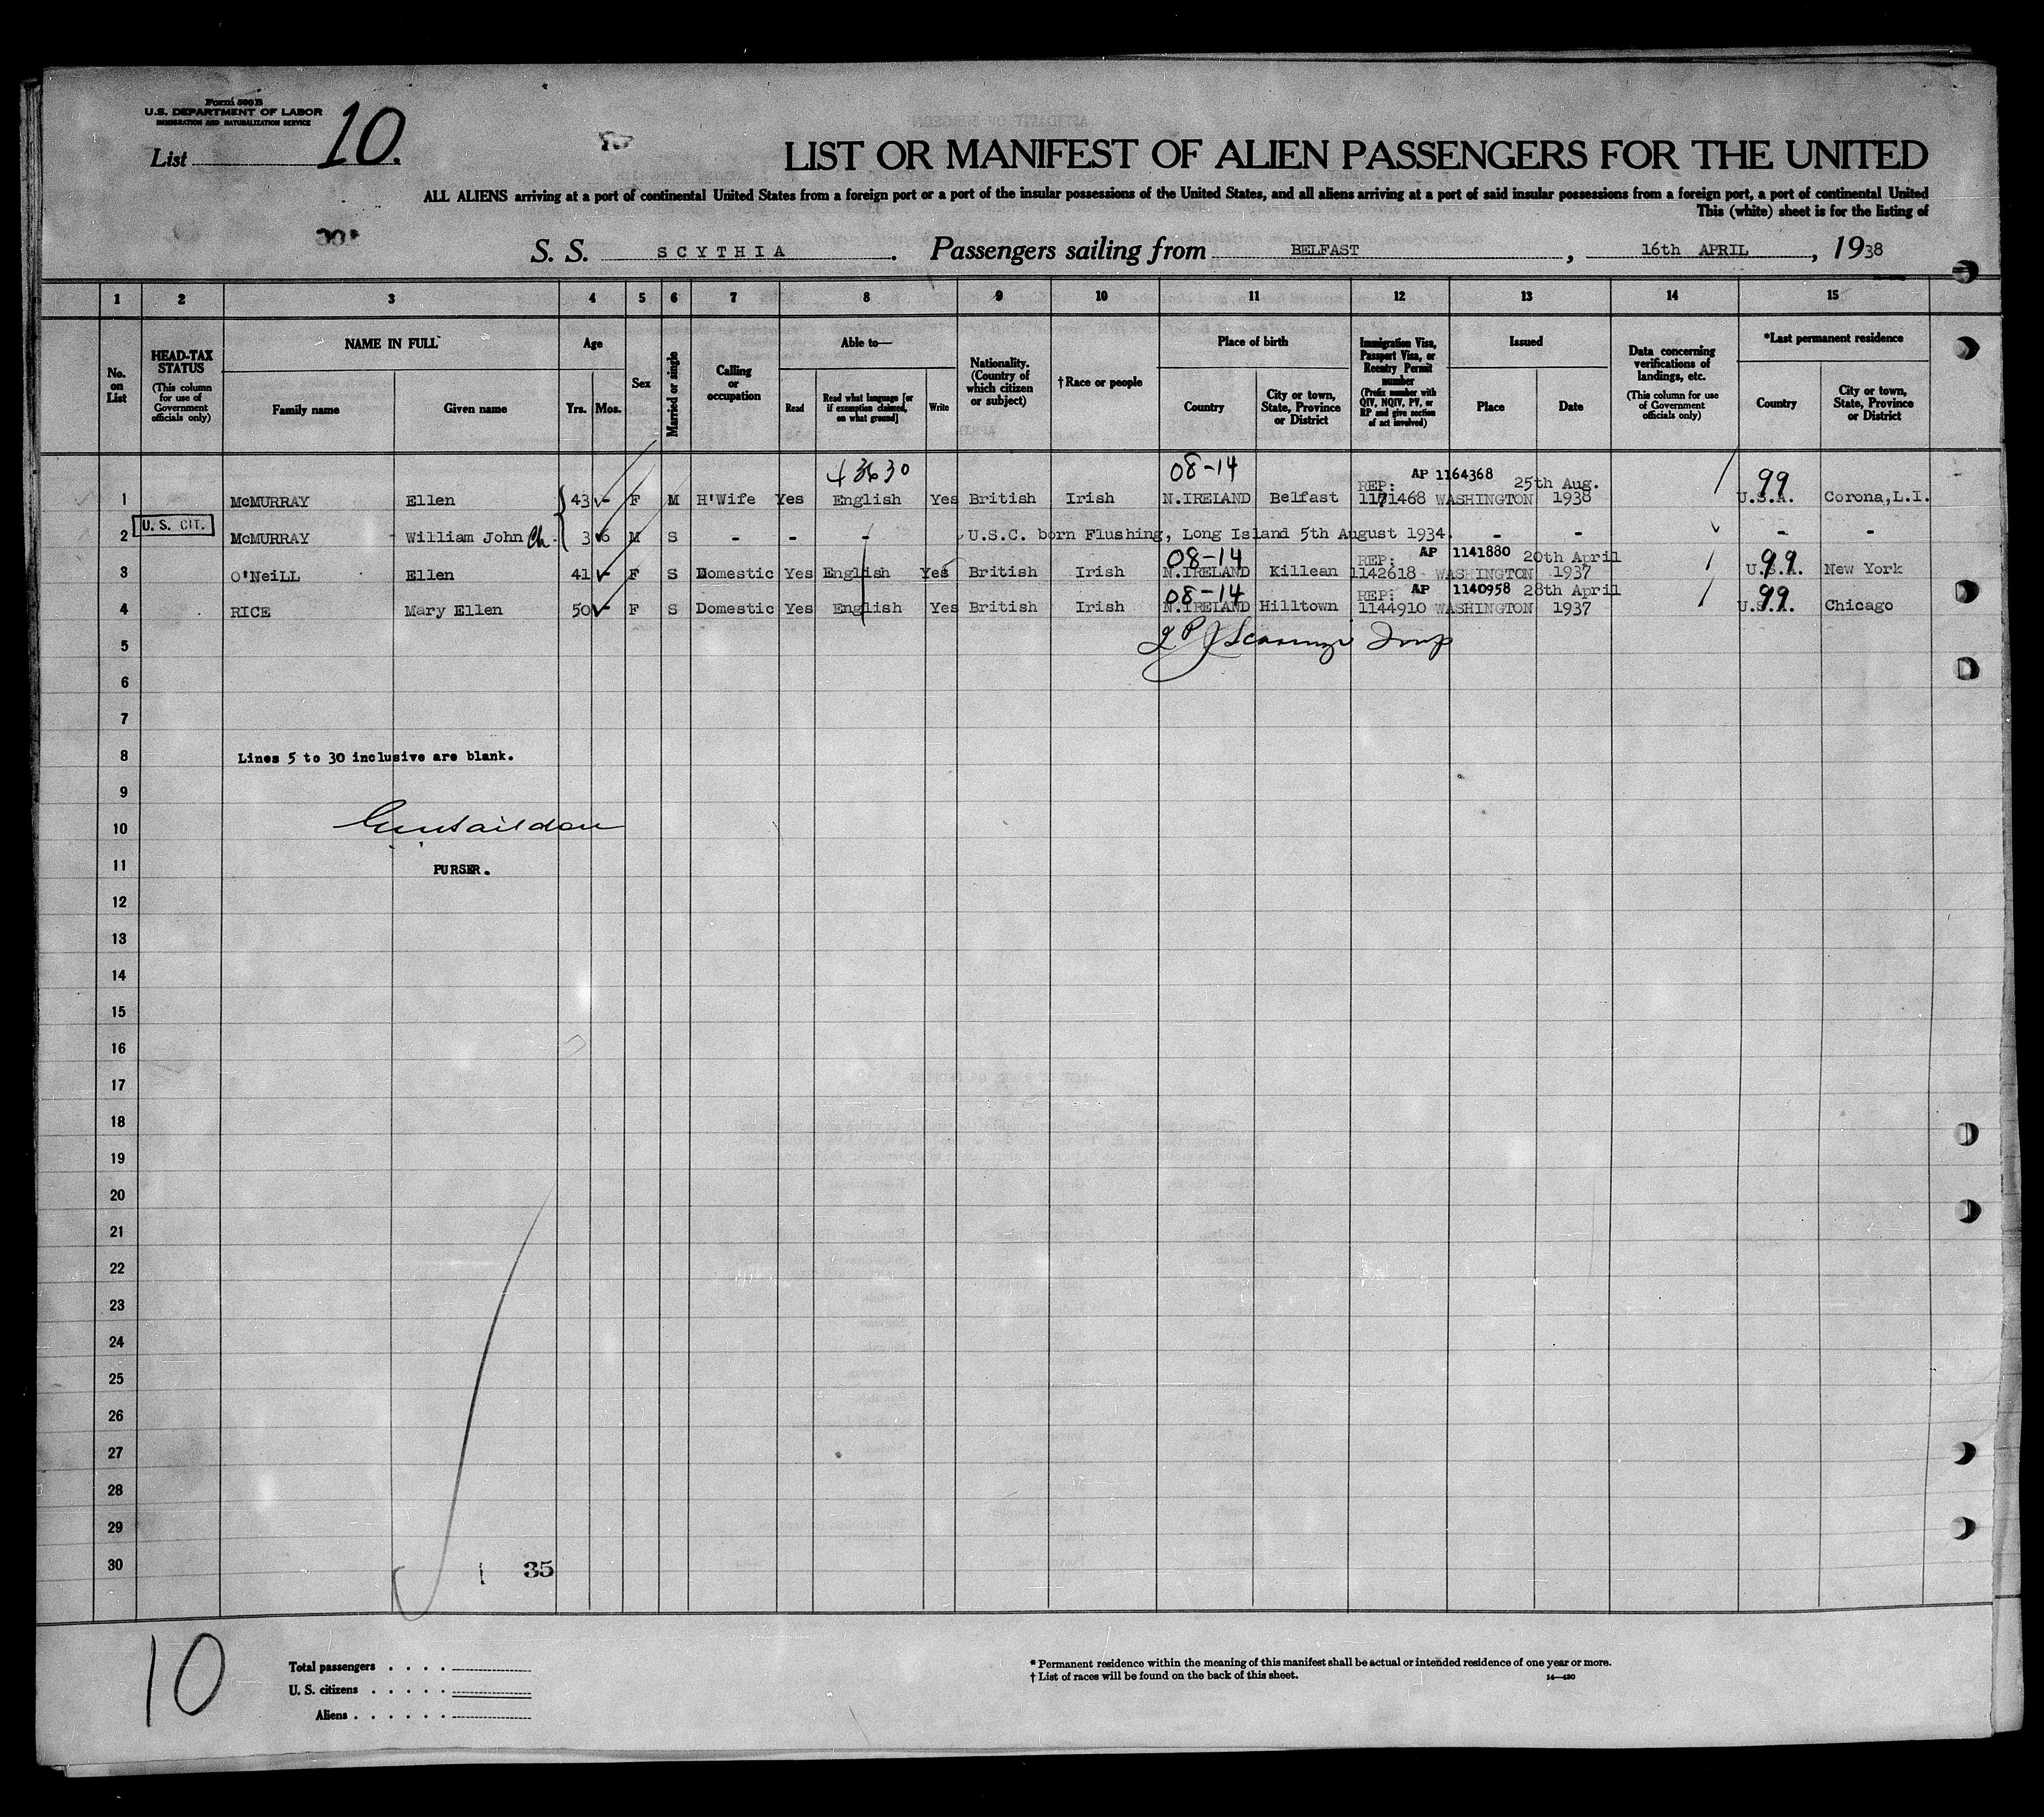 Form 500 B
U.S. DEPARTMENT OF LABOR
IMMIGRATION AND NATURALIZATION SERVICE
List 10.
LIST OR MANIFEST OF ALIEN PASSENGERS FOR THE UNITED
ALL ALIENS arriving at a port of continental United States from a foreign port or a port of the insular possessions of the United States, and all aliens arriving at a port of said insular possessions from a foreign port, a port of continental United
This (white) sheet is for the listing of
S. S. SCYTHIA. Passengers sailing from BELFAST, 16th APRIL, 1938
1 2 3 4 5 6 7 8 9 10 11 12 13 14 15
No. on List
HEAD-TAX STATUS (This column for use of Government officials only)
NAME IN FULL
Family name Given name
Age
Yrs. Mos.
Sex
Married or single
Calling or occupation
Able to—
Read Read what language [or if exemption claimed, on what ground] Write
Nationality. (Country of which citizen or subject)
†Race or people
Place of birth
Country City or town, State, Province or District
Immigration Visa, Passport Visa, or Reentry Permit number (Prefix number with QIV, NQIV, PV, or RP and give section of act involved)
Issued
Place Date
Data concerning verifications of landings, etc. (This column for use of Government officials only)
*Last permanent residence
Country City or town, State, Province or District
3630 08-14 AP 1164368 99
REP: 25th Aug.
1 McMURRAY Ellen 43 - F M H'Wife Yes English Yes British Irish N.IRELAND Belfast 1171468 WASHINGTON 1938 U.S.A. Corona,L.I.
U. S. CIT.
2 McMURRAY William John Ch. 3 6 M S - - - - U.S.C. born Flushing, Long Island 5th August 1934. - - - -
08-14 REP: AP 1141880 20th April 99
3 O'NeiLL Ellen 41 - F S Domestic Yes English Yes British Irish N.IRELAND Killean 1142618 WASHINGTON 1937 U.S.A. New York
08-14 REP: AP 1140958 28th April 99
4 RICE Mary Ellen 50 - F S Domestic Yes English Yes British Irish N.IRELAND Hilltown 1144910 WASHINGTON 1937 U.S.A. Chicago
5
6
7
8 Lines 5 to 30 inclusive are blank.
9
10
11 PURSER.
12
13
14
15
16
17
18
19
20
21
22
23
24
25
26
27
28
29
30 35
10
Total passengers . . . .
U. S. citizens . . . . .
Aliens . . . . . .
* Permanent residence within the meaning of this manifest shall be actual or intended residence of one year or more.
† List of races will be found on the back of this sheet.
14—430